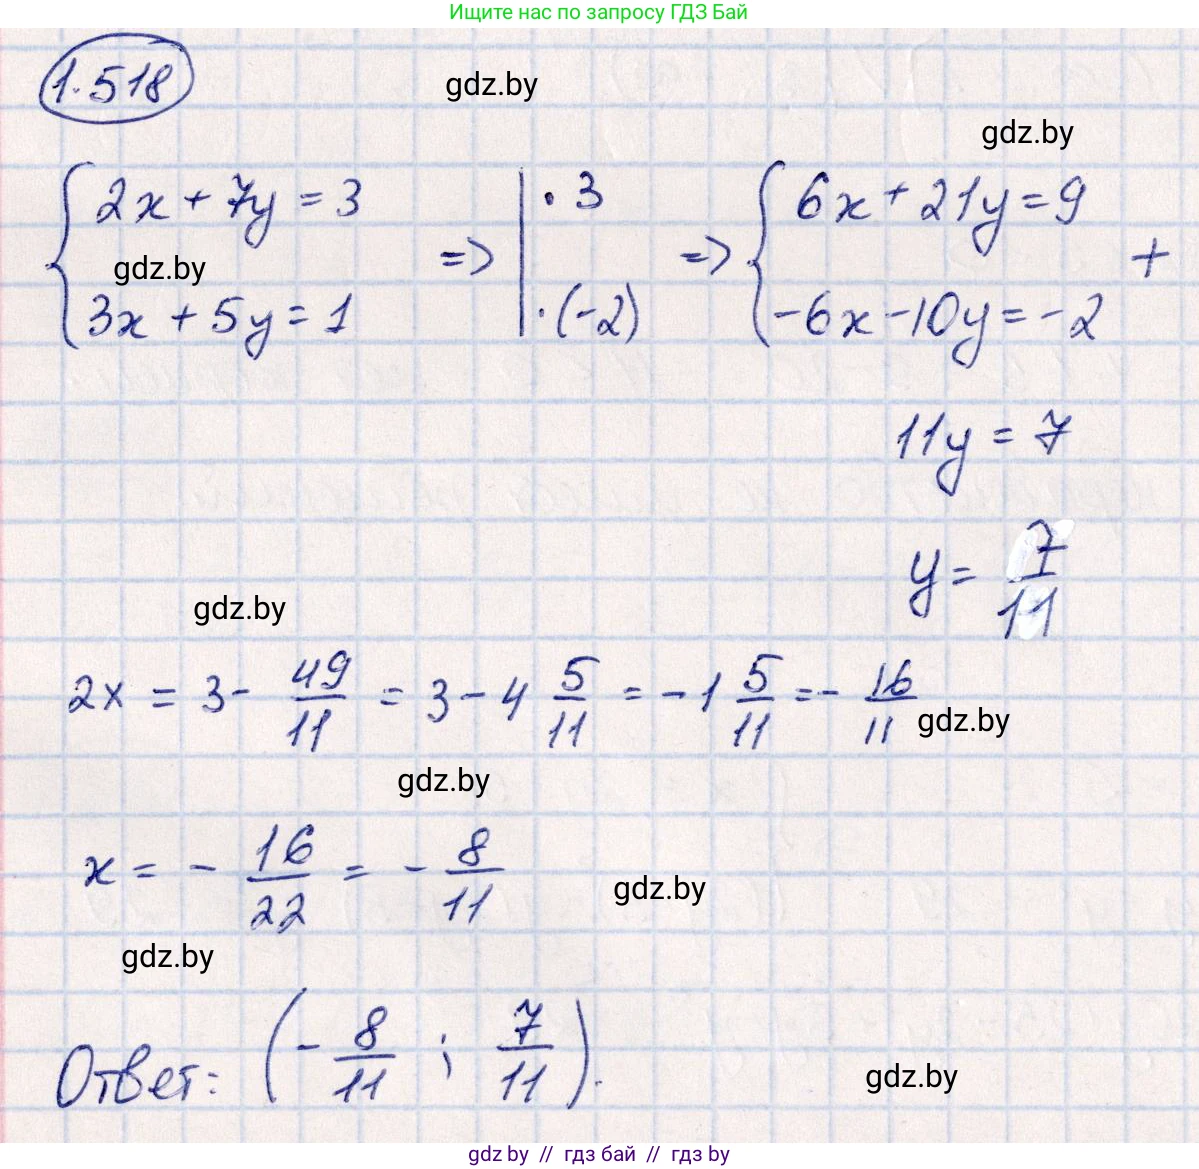 Ищите нас по запросу ГДЗ Бай
1.518
gdz.by
gdz.by
{ 2x + 7y = 3 => | · 3 => { 6x + 21y = 9
gdz.by
3x + 5y = 1 | · (-2) -6x - 10y = -2 +
11y = 7
y = 7/11
gdz.by
2x = 3 - 49/11 = 3 - 4 5/11 = -1 5/11 = - 16/11
gdz.by
gdz.by
x = - 16/22 = - 8/11
gdz.by
gdz.by
Ответ: (- 8/11 ; 7/11).
gdz.by
gdz.by // гдз бай // гдз by